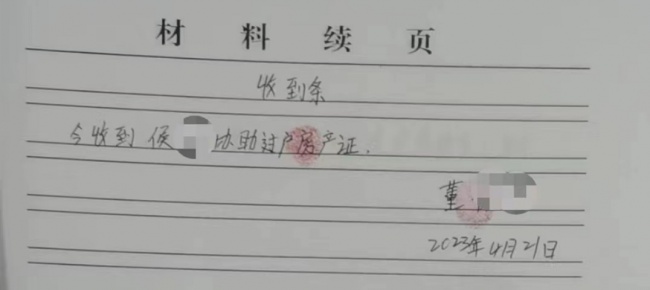 材料续页
收到条
今收到侯 协助过户房产证.
董
2023年4月21日